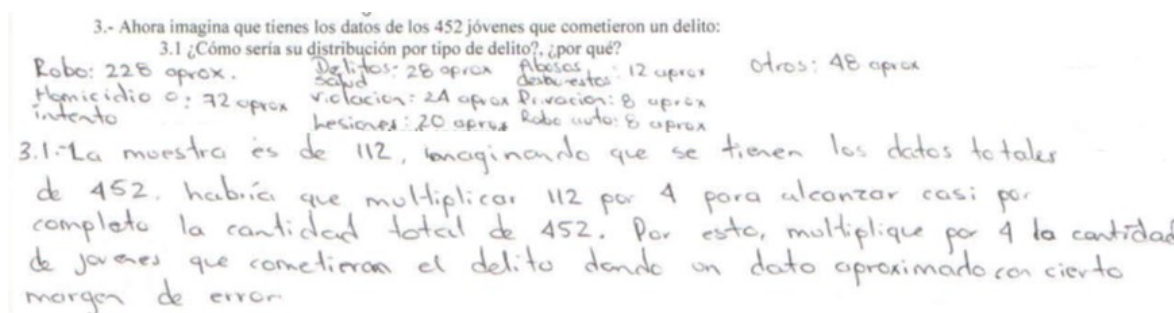 3.- Ahora imagina que tienes los datos de los 452 jóvenes que cometieron un delito:
3.1 ¿Cómo sería su distribución por tipo de delito?, ¿por qué?
Robo: 228 aprox.
Homicidio o intento: 72 aprox
Delitos salud: 28 aprox
Violacion: 24 aprox
Lesiones: 20 aprox
Abusos deshonestos: 12 aprox
Privacion: 8 aprox
Robo auto: 8 aprox
otros: 48 aprox
3.1.-La muestra es de 112, imaginando que se tienen los datos totales
de 452, habría que multiplicar 112 por 4 para alcanzar casi por
completo la cantidad total de 452. Por esto, multiplique por 4 la cantidad
de jovenes que cometieron el delito dando un dato aproximado con cierto
margen de error.